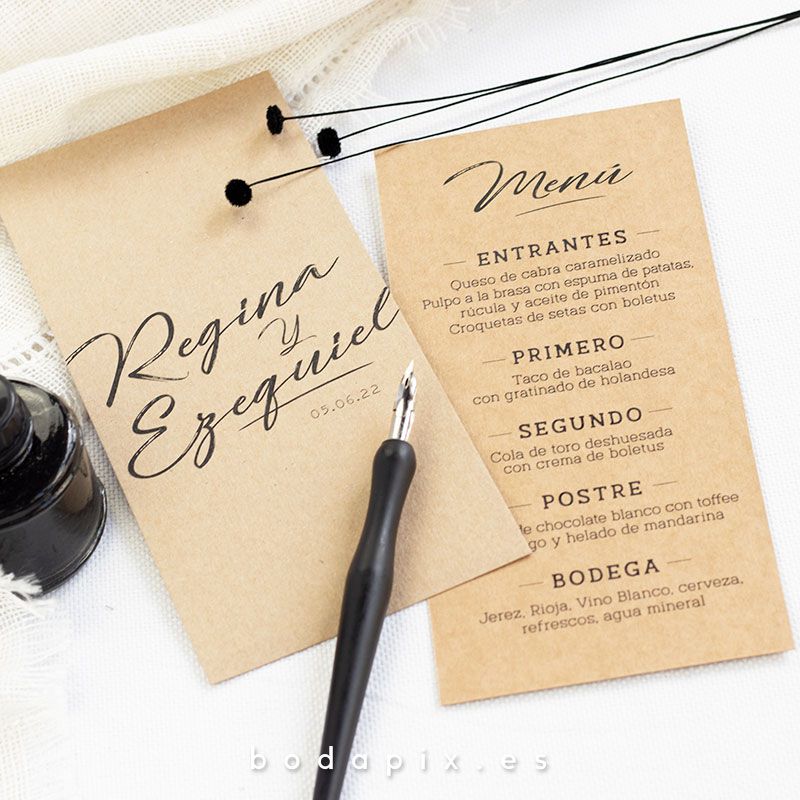 Regina
y
Ezequiel
05.06.22
Menú
ENTRANTES
Queso de cabra caramelizado
Pulpo a la brasa con espuma de patatas,
rúcula y aceite de pimentón
Croquetas de setas con boletus
PRIMERO
Taco de bacalao
con gratinado de holandesa
SEGUNDO
Cola de toro deshuesada
con crema de boletus
POSTRE
de chocolate blanco con toffee
y helado de mandarina
BODEGA
Jerez, Rioja, Vino Blanco, cerveza,
refrescos, agua mineral
bodapix.es